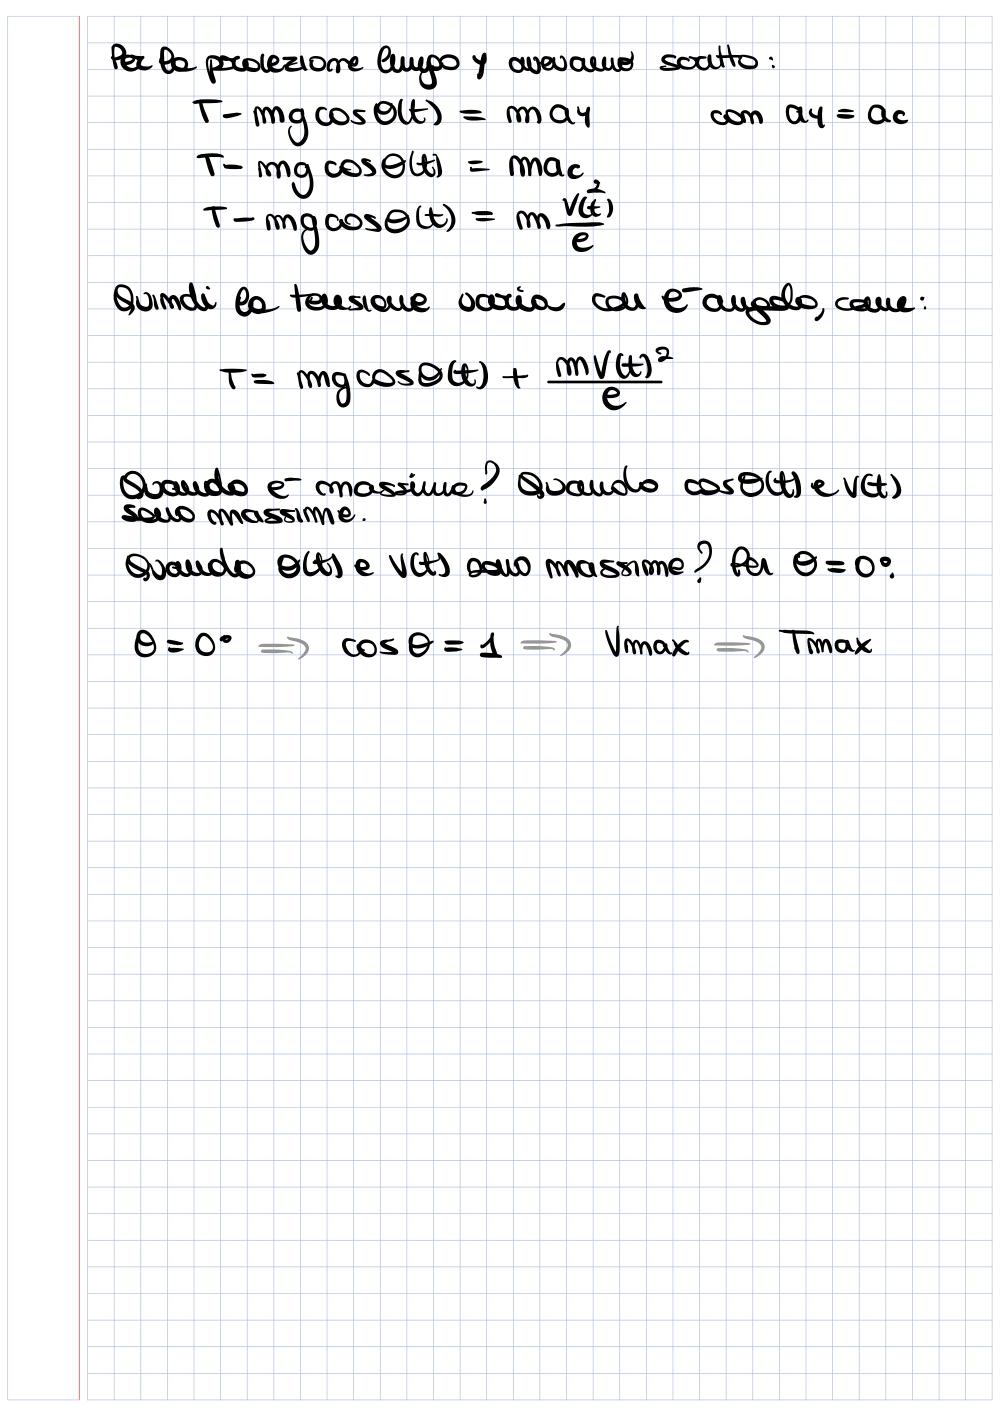 Per la proiezione lungo y avevamo scritto:
T - mg cosθ(t) = m ay con ay = ac
T - mg cosθ(t) = mac
T - mg cosθ(t) = m V(t)²/l
Quindi la tensione varia con l'angolo, come:
T = mg cosθ(t) + mV(t)²/l
Quando è massima? Quando cosθ(t) e V(t)
sono massime.
Quando θ(t) e V(t) sono massime? Per θ = 0°.
θ = 0° ⇒ cos θ = 1 ⇒ Vmax ⇒ Tmax